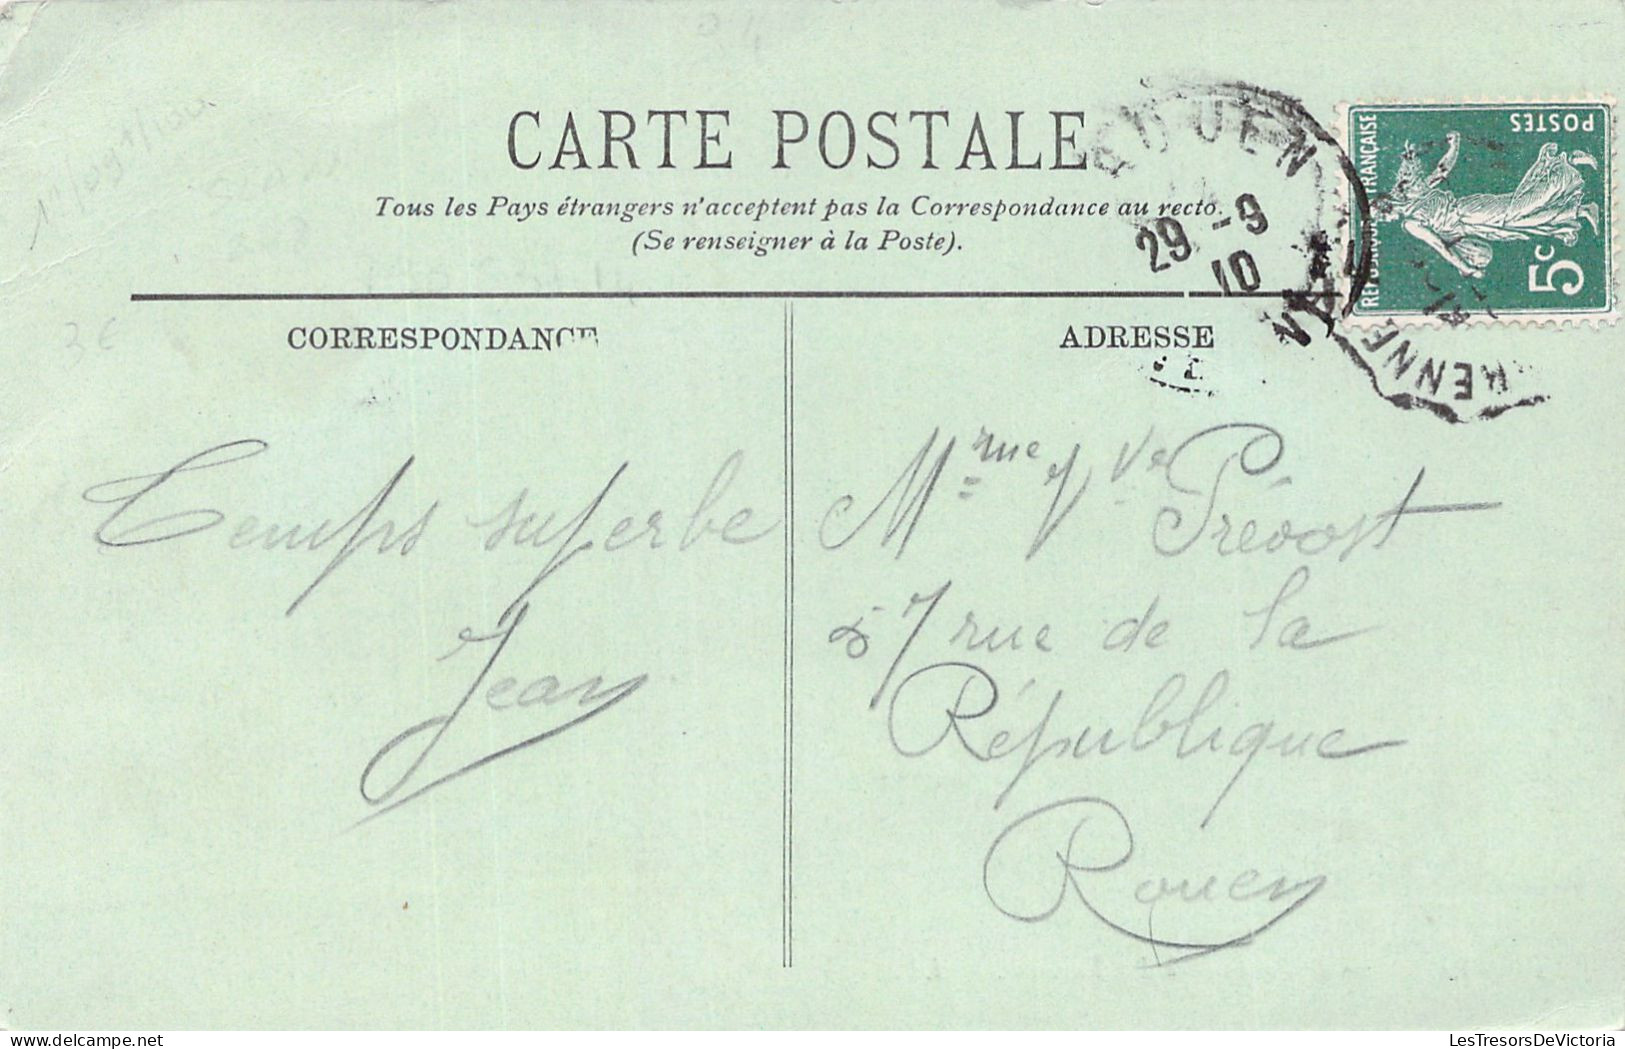 CARTE POSTALE
Tous les Pays étrangers n'acceptent pas la Correspondance au recto.
(Se renseigner à la Poste).
ROUEN
29 -9
10
POSTES
5c
RENNE
3 €
CORRESPONDANCE
Temps superbe
Jean
ADRESSE
Mme Vve Prévost
57 rue de la
République
Rouen
LesTresorsDeVictoria